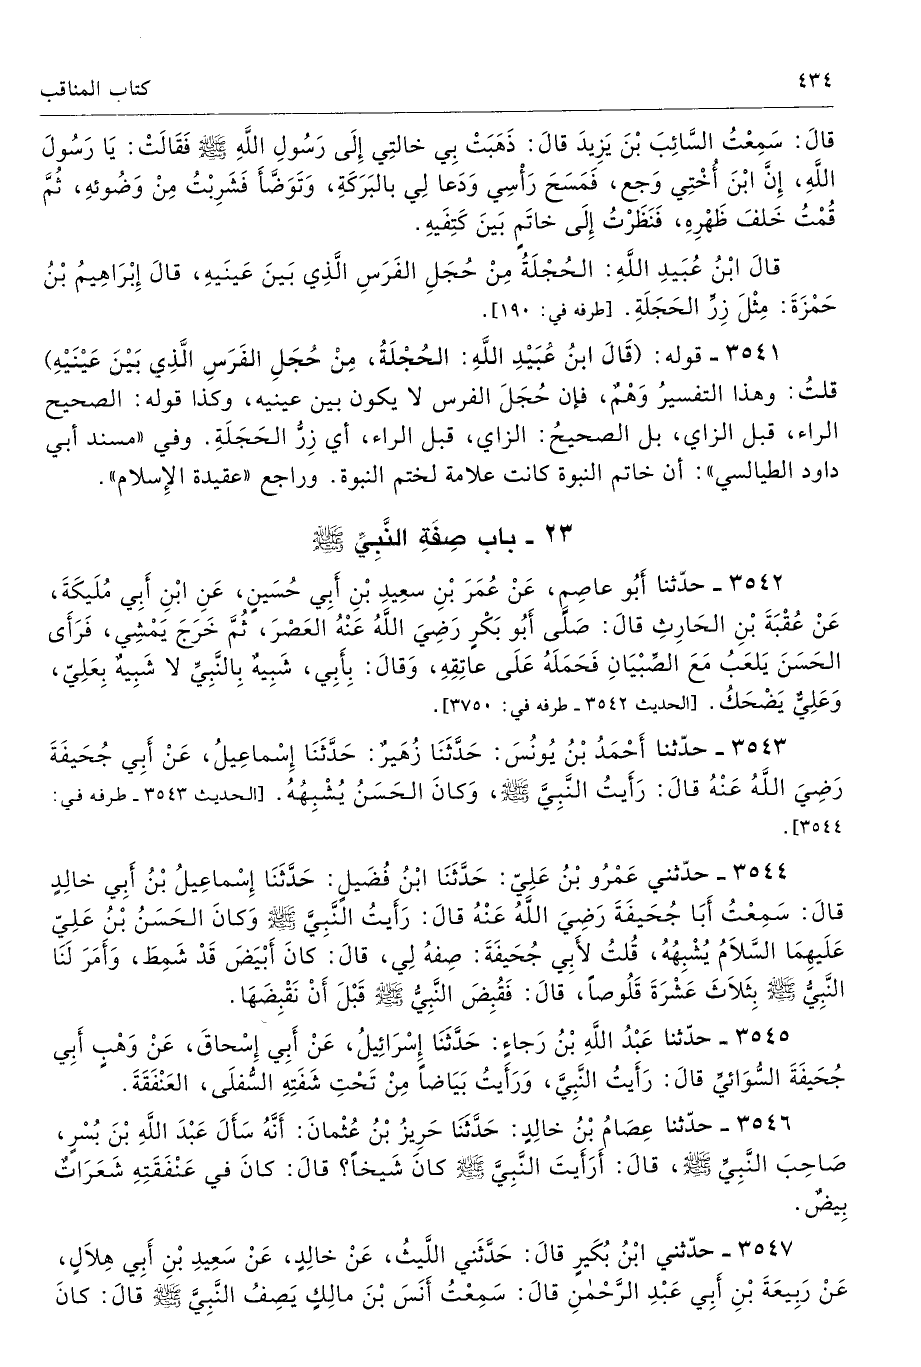 ٤٣٤
كتاب المناقب
قالَ: سَمِعْتُ السَّائِبَ بْنَ يَزِيدَ قالَ: ذَهَبَتْ بِي خالتِي إِلَى رَسُولِ اللَّهِ ﷺ فَقَالَتْ: يَا رَسُولَ
اللَّهِ، إِنَّ ابْنَ أُخْتِي وَجِع، فَمَسَحَ رَأْسِي وَدَعا لِي بالبَرَكَةِ، وَتَوَضَّأَ فَشَرِبْتُ مِنْ وَضُوئِهِ، ثُمَّ
قُمْتُ خَلفَ ظَهْرِهِ، فَنَظَرْتُ إِلَى خاتَمٍ بَينَ كَتِفَيهِ.
قالَ ابْنُ عُبَيدِ اللَّهِ: الحُجْلَةُ مِنْ حُجَلِ الفَرَسِ الَّذِي بَينَ عَينَيهِ، قالَ إِبْرَاهِيمُ بْنُ
حَمْزَةَ: مِثْلَ زِرِّ الحَجَلَةِ. [طرفه في: ١٩٠].
٣٥٤١ ـ قوله: (قَالَ ابنُ عُبَيْدِ اللَّهِ: الحُجْلَةُ، مِنْ حُجَلِ الفَرَسِ الَّذِي بَيْنَ عَيْنَيْهِ)
قلتُ: وهذا التفسيرُ وَهْمٌ، فإن حُجَلَ الفرس لا يكون بين عينيه، وكذا قوله: الصحيح
الراء، قبل الزاي، بل الصحيحُ: الزاي، قبل الراء، أي زِرُّ الحَجَلَةِ. وفي «مسند أبي
داود الطيالسي»: أن خاتم النبوة كانت علامة لختم النبوة. وراجع «عقيدة الإسلام».
٢٣ ـ باب صِفَةِ النَّبِيِّ ﷺ
٣٥٤٢ ـ حدّثنا أَبُو عاصِمٍ، عَنْ عُمَرَ بْنِ سعِيدِ بْنِ أَبِي حُسَينٍ، عَنِ ابْنِ أَبِي مُلَيكَةَ،
عَنْ عُقْبَةَ بْنِ الحَارِثِ قالَ: صَلَّى أَبُو بَكْرٍ رَضِيَ اللَّهُ عَنْهُ العَصْرَ، ثُمَّ خَرَجَ يَمْشِي، فَرَأَى
الحَسَنَ يَلعَبُ مَعَ الصِّبْيَانِ فَحَمَلَهُ عَلَى عاتِقِهِ، وَقالَ: بِأَبِي، شَبِيهٌ بِالنَّبِيِّ لا شَبِيهٌ بِعَلِيّ،
وَعَلِيٌّ يَضْحَكُ. [الحديث ٣٥٤٢ ـ طرفه في: ٣٧٥٠].
٣٥٤٣ ـ حدّثنا أَحْمَدُ بْنُ يُونُسَ: حَدَّثَنَا زُهَيرٌ: حَدَّثَنَا إِسْماعِيلُ، عَنْ أَبِي جُحَيفَةَ
رَضِيَ اللَّهُ عَنْهُ قالَ: رَأَيتُ النَّبِيَّ ﷺ، وَكانَ الحَسَنُ يُشْبِهُهُ. [الحديث ٣٥٤٣ ـ طرفه في:
٣٥٤٤].
٣٥٤٤ ـ حدّثني عَمْرُو بْنُ عَلِيّ: حَدَّثَنَا ابْنُ فُضَيلٍ: حَدَّثَنَا إِسْماعِيلُ بْنُ أَبِي خالِدٍ
قالَ: سَمِعْتُ أَبَا جُحَيفَةَ رَضِيَ اللَّهُ عَنْهُ قالَ: رَأَيتُ النَّبِيَّ ﷺ وَكانَ الحَسَنُ بْنُ عَلِيّ
عَلَيهِمَا السَّلاَمُ يُشْبِهُهُ، قُلتُ لأَبِي جُحَيفَةَ: صِفهُ لِي، قالَ: كانَ أَبْيَضَ قَدْ شَمِطَ، وَأَمَرَ لَنَا
النَّبِيُّ ﷺ بِثَلاَثَ عَشْرَةَ قَلُوصاً، قالَ: فَقُبِضَ النَّبِيُّ ﷺ قَبْلَ أَنْ نَقْبِضَهَا.
٣٥٤٥ ـ حدّثنا عَبْدُ اللَّهِ بْنُ رَجاءٍ: حَدَّثَنَا إِسْرَائِيلُ، عَنْ أَبِي إِسْحاقَ، عَنْ وَهْبٍ أَبِي
جُحَيفَةَ السُّوَائيِّ قالَ: رَأَيتُ النَّبِيَّ، وَرَأَيتُ بَيَاضاً مِنْ تَحْتِ شَفَتِهِ السُّفلَى، العَنْفَقَةَ.
٣٥٤٦ ـ حدّثنا عِصَامُ بْنُ خالِدٍ: حَدَّثَنَا حَرِيزُ بْنُ عُثْمانَ: أَنَّهُ سَأَلَ عَبْدَ اللَّهِ بْنَ بُسْرٍ،
صَاحِبَ النَّبِيِّ ﷺ، قالَ: أَرَأَيتَ النَّبِيَّ ﷺ كانَ شَيخاً؟ قالَ: كانَ في عَنْفَقَتِهِ شَعَرَاتٌ
بِيضٌ.
٣٥٤٧ ـ حدّثني ابْنُ بُكَيرٍ قالَ: حَدَّثَنِي اللَّيثُ، عَنْ خالِدٍ، عَنْ سَعِيدِ بْنِ أَبِي هِلاَلٍ،
عَنْ رَبِيعَةَ بْنِ أَبِي عَبْدِ الرَّحْمٰنِ قالَ: سَمِعْتُ أَنَسَ بْنَ مالِكٍ يَصِفُ النَّبِيَّ ﷺ قالَ: كانَ